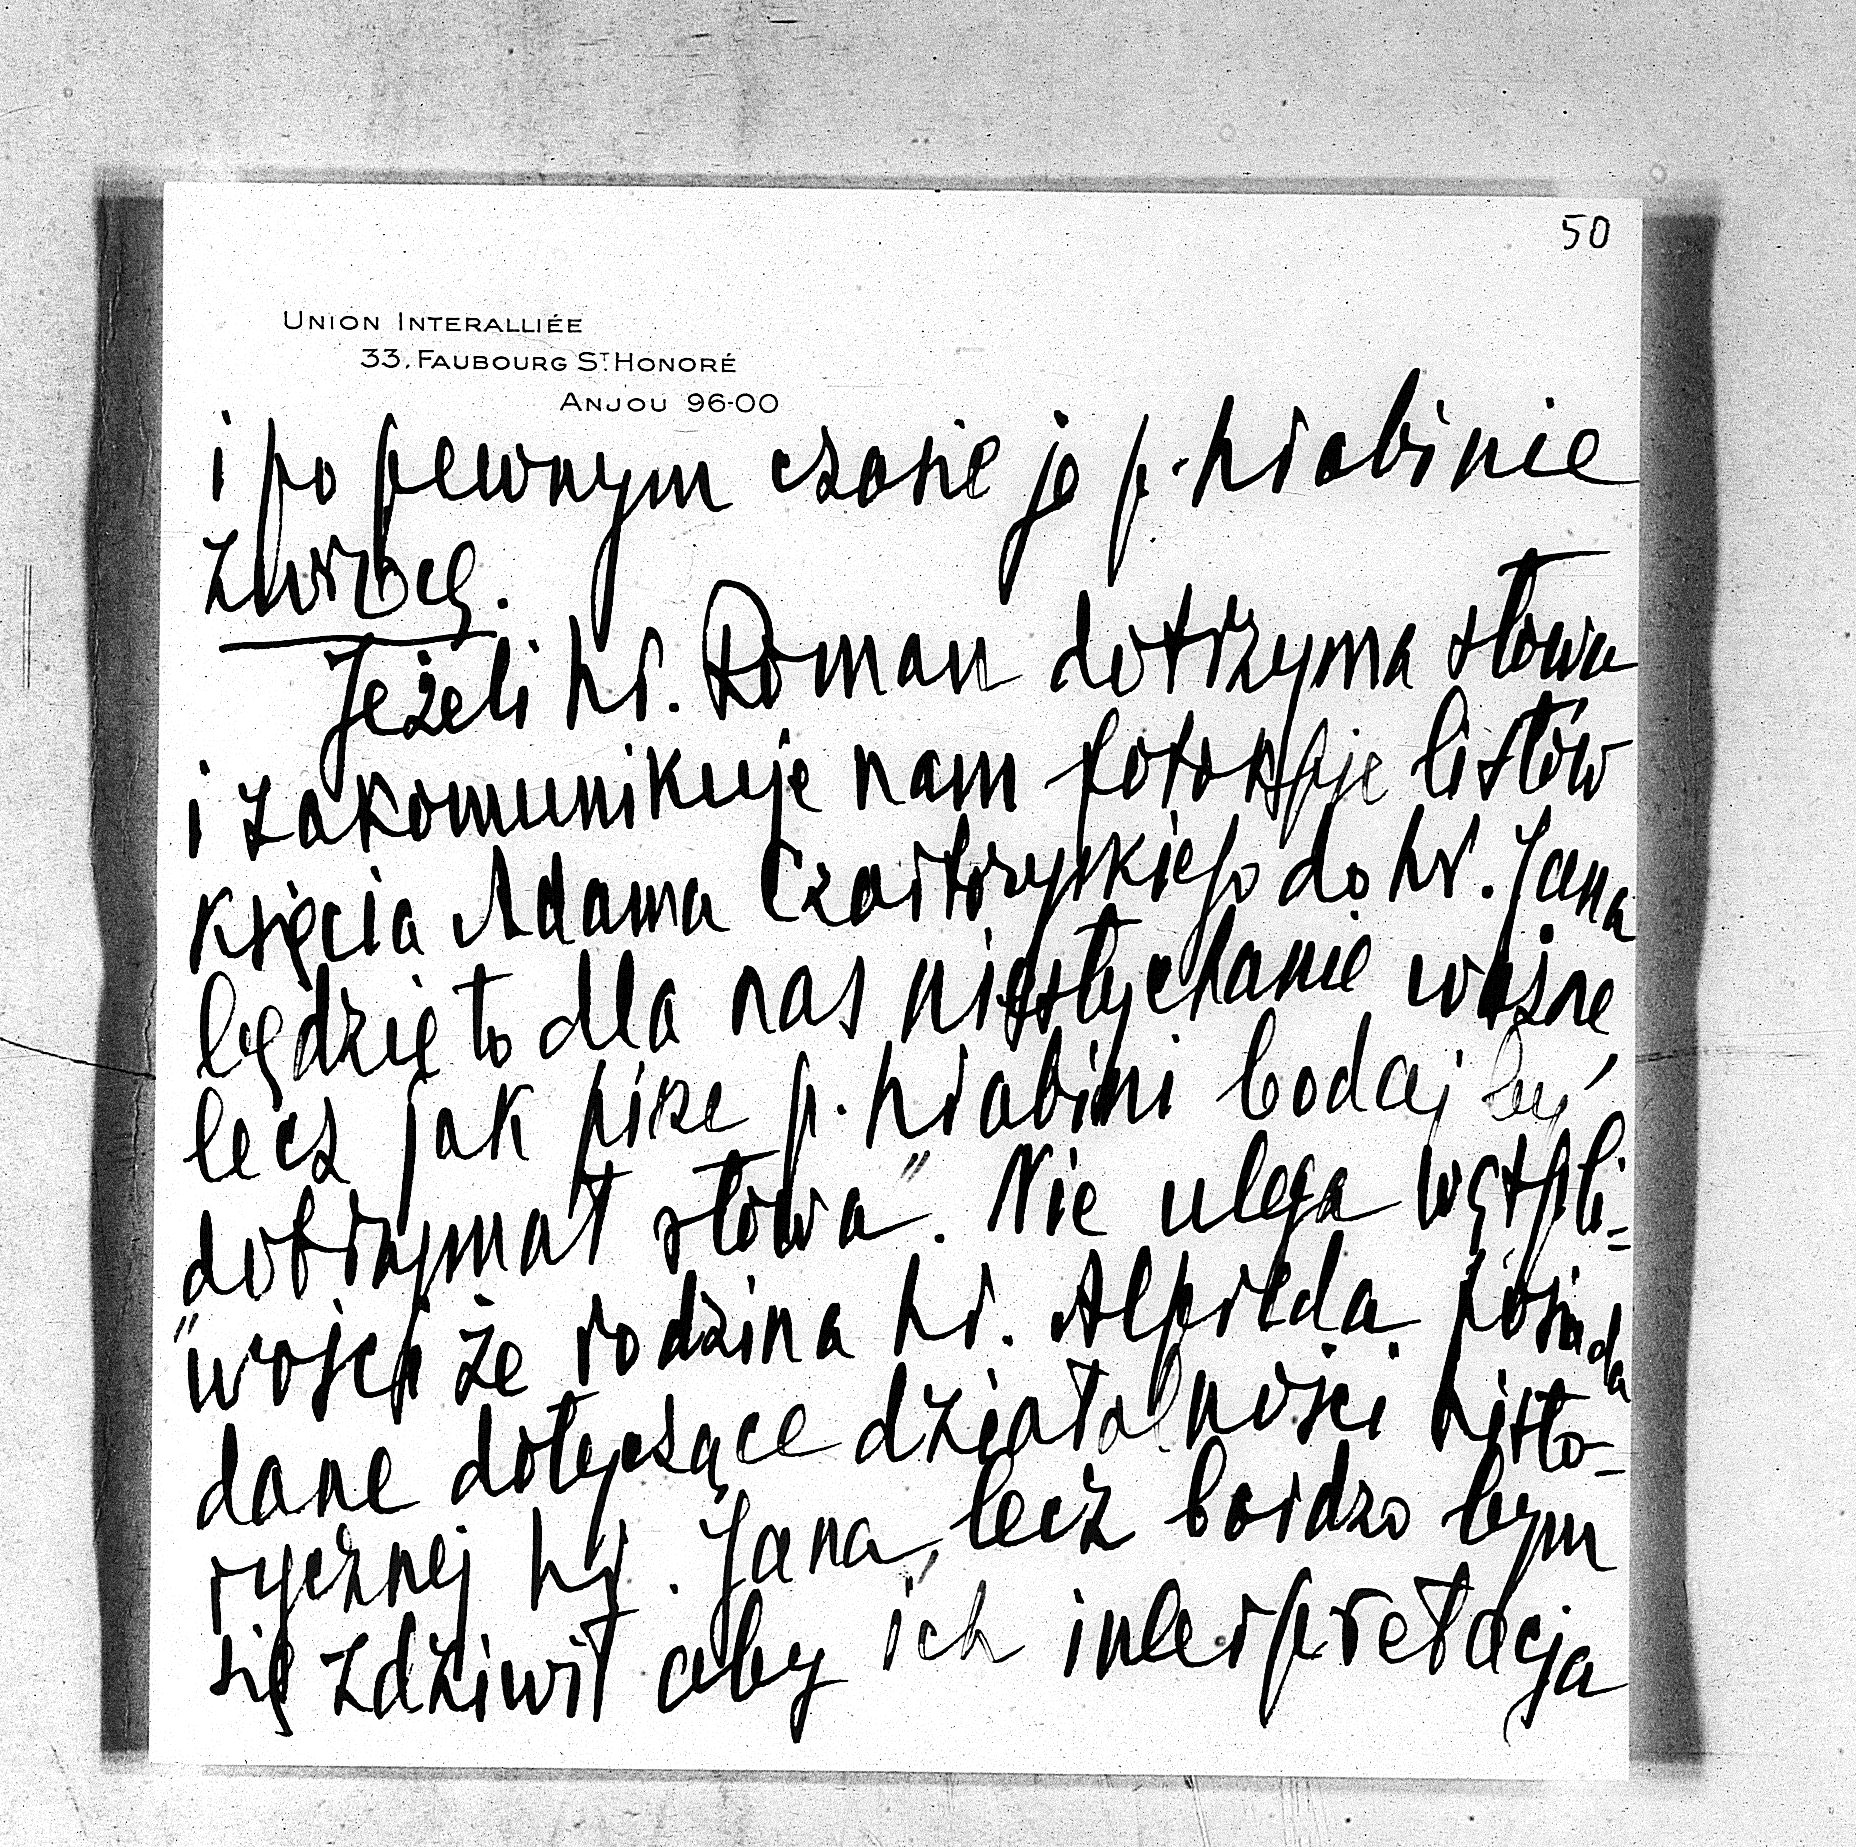 50
UNION INTERALLIÉE
33, FAUBOURG ST. HONORÉ
ANJOU 96-00
i po pewnym czasie je p. hrabinie
zwrócę.
Jeżeli hr. Roman dotrzyma słowa
i zakomunikuje nam fotokopje listów
księcia Adama Czartoryskiego do hr. Jana
będzie to dla nas niesłychanie ważne
lecz jak pisze p. hrabini bodaj by
dotrzymał słowa". Nie ulega wątpli=
"wości że rodzina hr. Alfreda posiada
dane dotyczące działalności histo=
rycznej hr. Jana, lecz bardzo bym
się zdziwił aby ich interpretacja